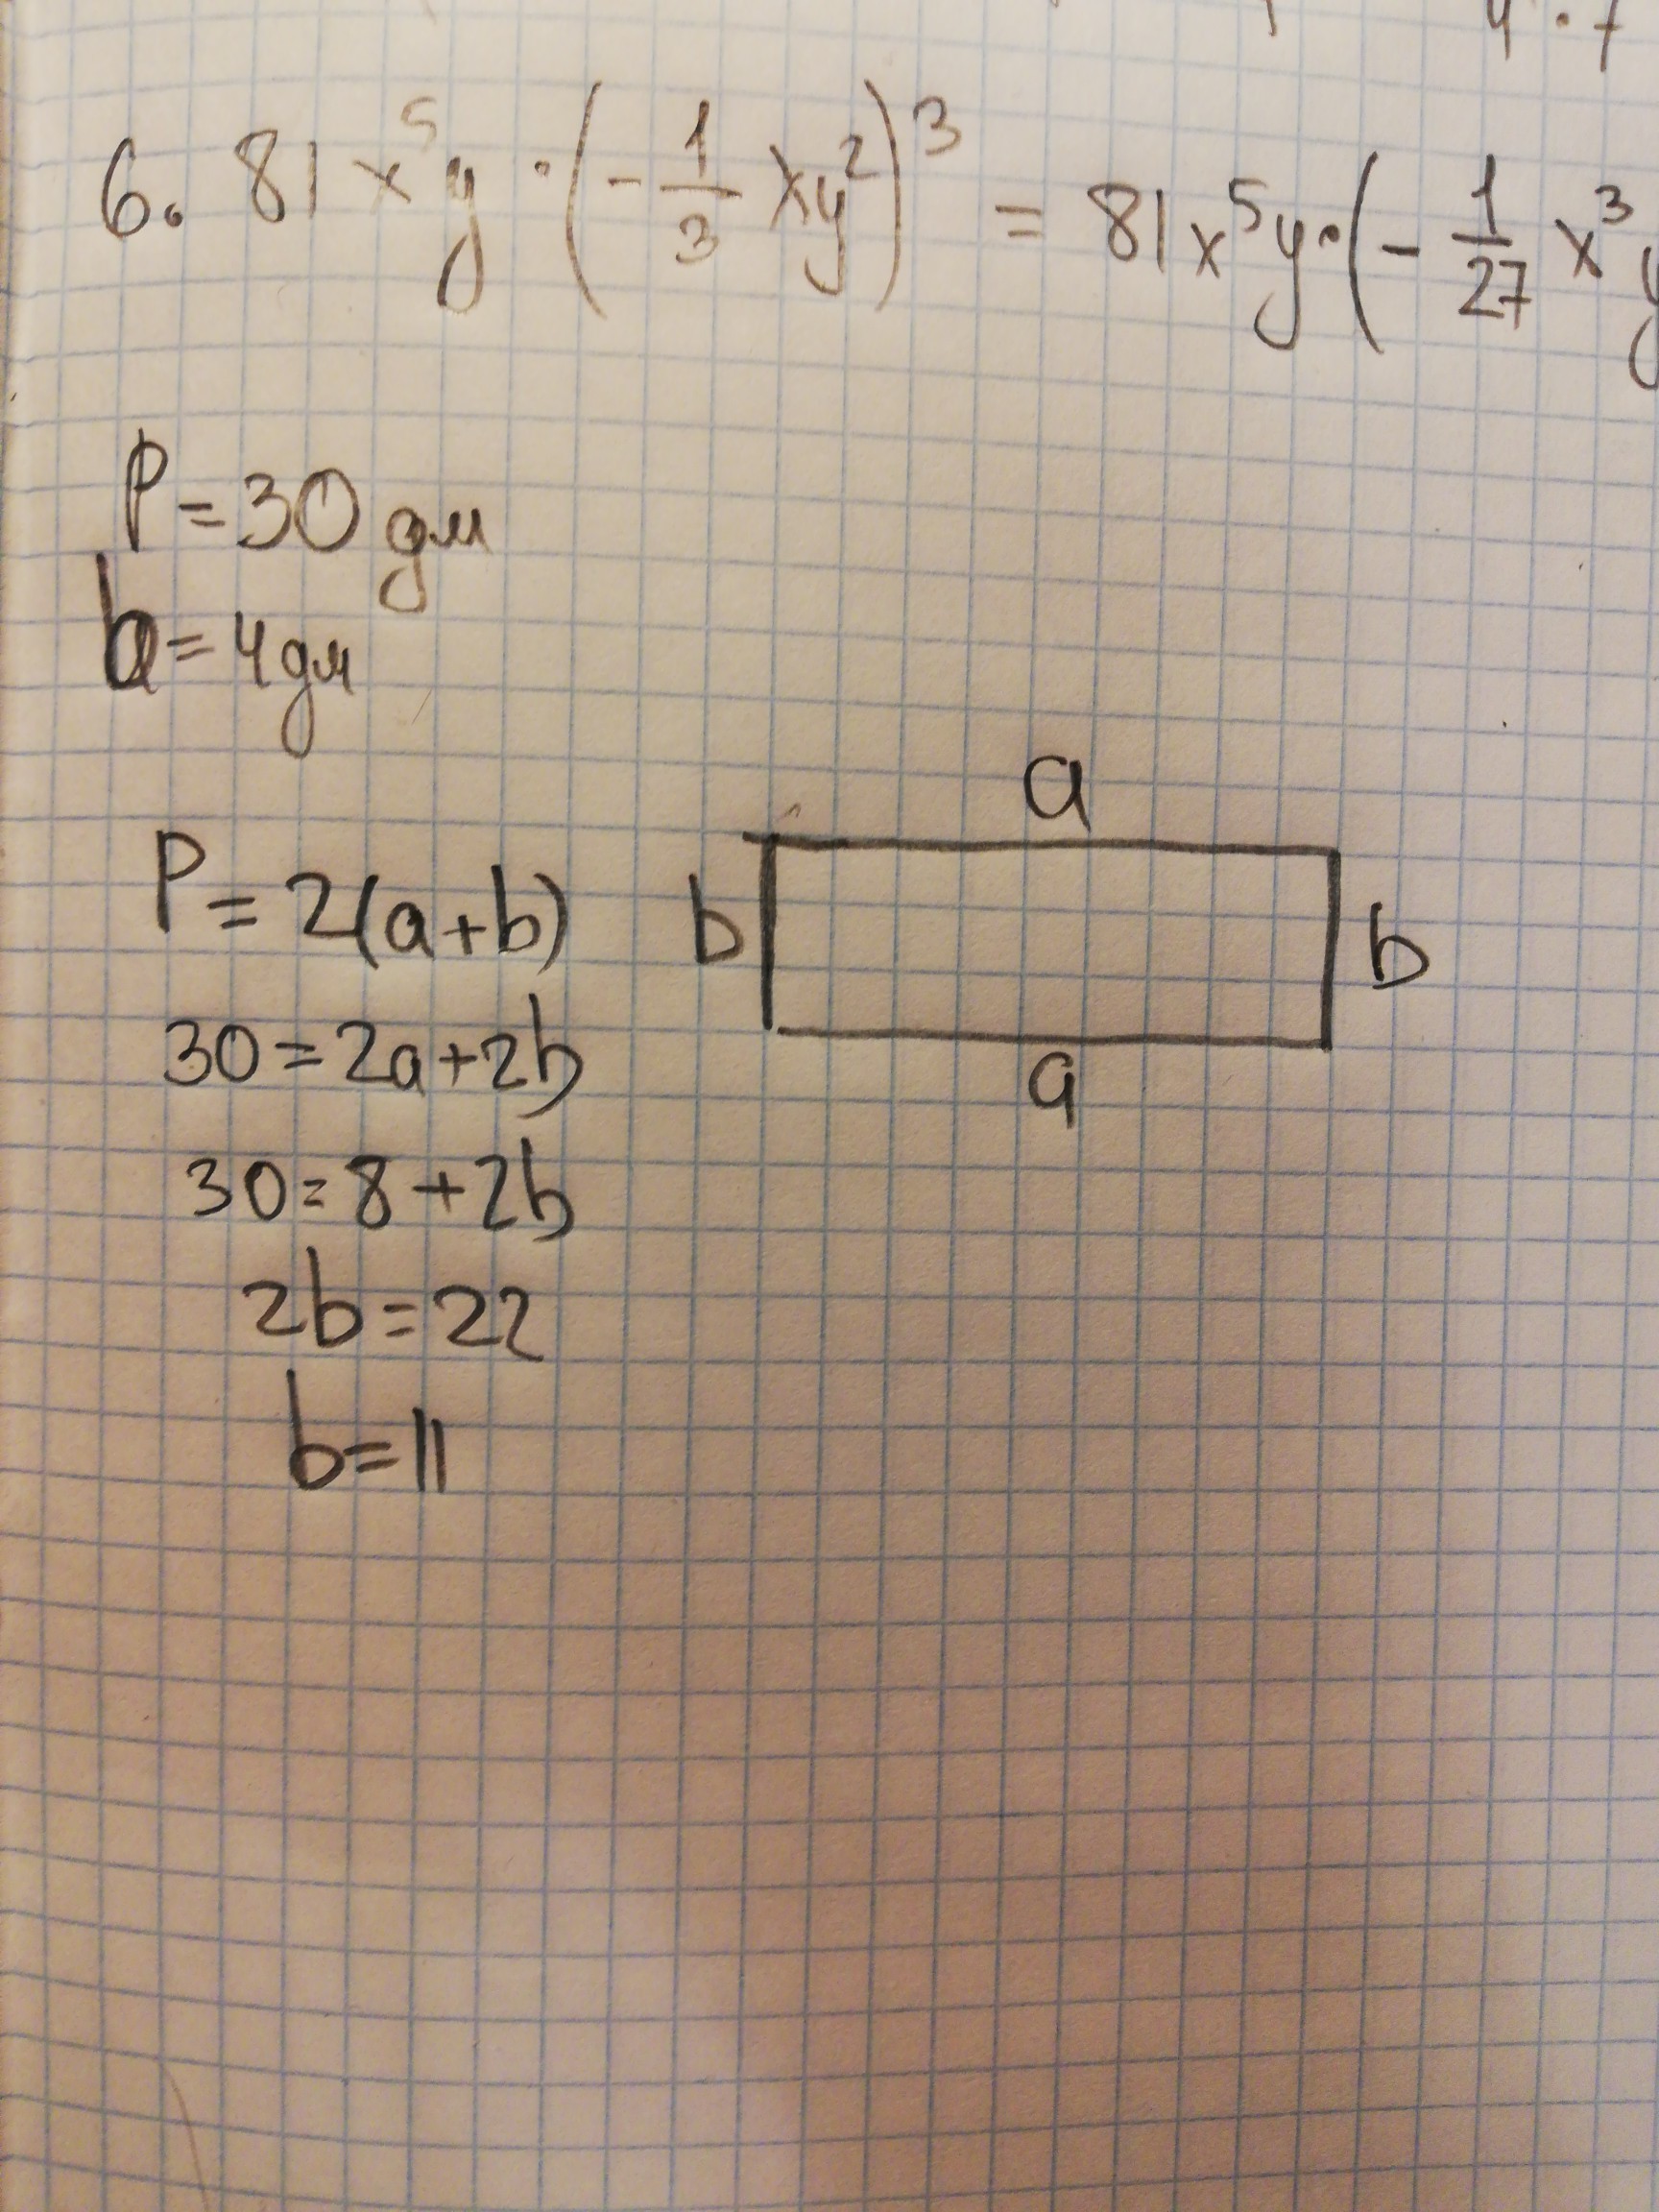 4 · 7
6. 81x⁵y · (-1/3 xy²)³ = 81x⁵y · (-1/27 x³y
P = 30 дм
b = 4 дм
a
P = 2(a+b)
b
b
30 = 2a + 2b
a
30 = 8 + 2b
2b = 22
b = 11